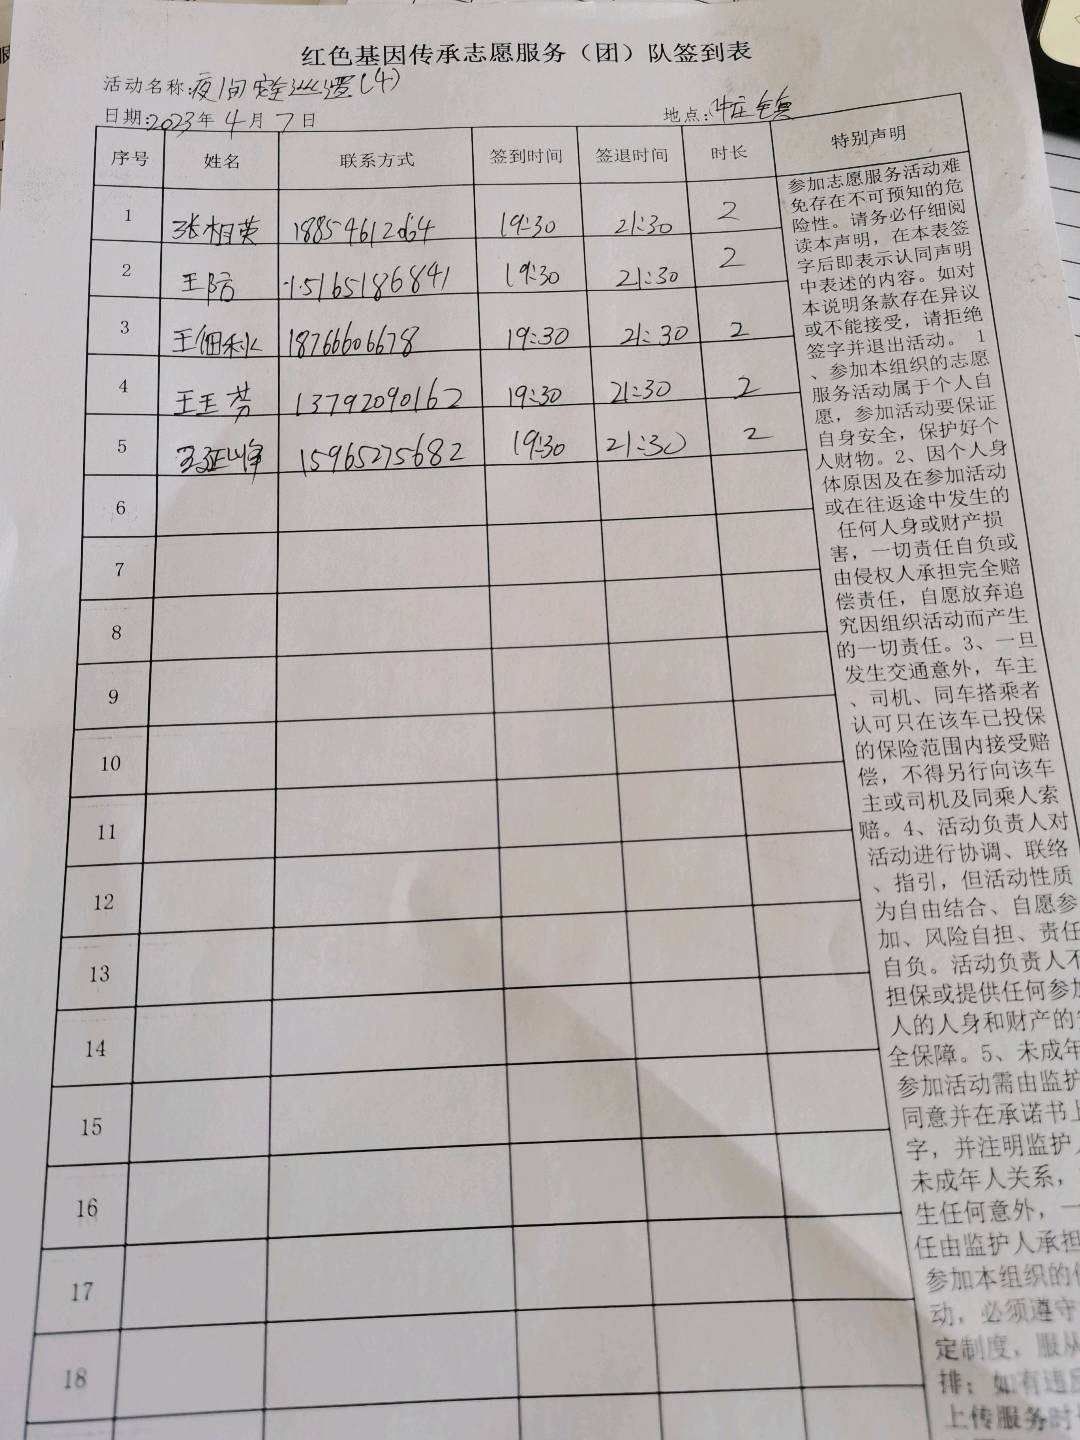 红色基因传承志愿服务（团）队签到表
活动名称:夜间安全巡逻(4)
日期:2023年4月7日
地点:仲庄镇
序号 姓名 联系方式 签到时间 签退时间 时长 特别声明
1 张相英 18854612064 19:30 21:30 2
2 王防 15165186841 19:30 21:30 2
3 王佃 18766606678 19:30 21:30 2
4 王玉芬 13792090162 19:30 21:30 2
5 峰 15965275682 19:30 21:30 2
6
7
8
9
10
11
12
13
14
15
16
17
18
参加志愿服务活动难
免存在不可预知的危
险性。请务必仔细阅
读本声明，在本表签
字后即表示认同声明
中表述的内容。如对
本说明条款存在异议
或不能接受，请拒绝
签字并退出活动。 1
、参加本组织的志愿
服务活动属于个人自
愿，参加活动要保证
自身安全，保护好个
人财物。2、因个人身
体原因及在参加活动
或在往返途中发生的
任何人身或财产损
害，一切责任自负或
由侵权人承担完全赔
偿责任，自愿放弃追
究因组织活动而产生
的一切责任。3、一旦
发生交通意外，车主
、司机、同车搭乘者
认可只在该车已投保
的保险范围内接受赔
偿，不得另行向该车
主或司机及同乘人索
赔。4、活动负责人对
活动进行协调、联络
、指引，但活动性质
为自由结合、自愿参
加、风险自担、责任
自负。活动负责人不
担保或提供任何参加
人的人身和财产的
全保障。5、未成年
参加活动需由监护
同意并在承诺书上
字，并注明监护
未成年人关系，
生任何意外，一
任由监护人承担
参加本组织的
动，必须遵守
定制度，服从
排；如有违反
上传服务时